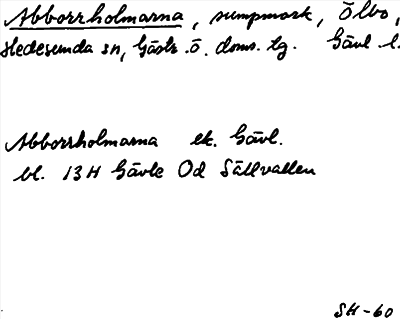 Abborrholmarna, sumpmark, Ölbo,
Hedesunda sn, Gästr. ö. doms. tg. Gävl. l.
Abborrholmarna ek. Gävl.
bl. 13 H Gävle Od Sällvallen
SH-60